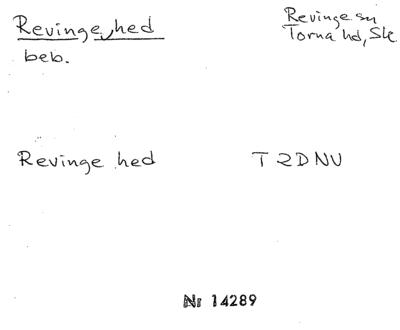 Revinge hed
beb.
Revinge sn
Torna hd, Sk
Revinge hed
T 2DNV
Nr 14289